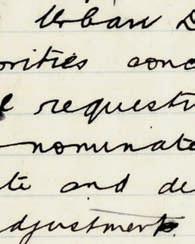 Urban D
orities conc
l requesti
nominate
te and de
adjustment